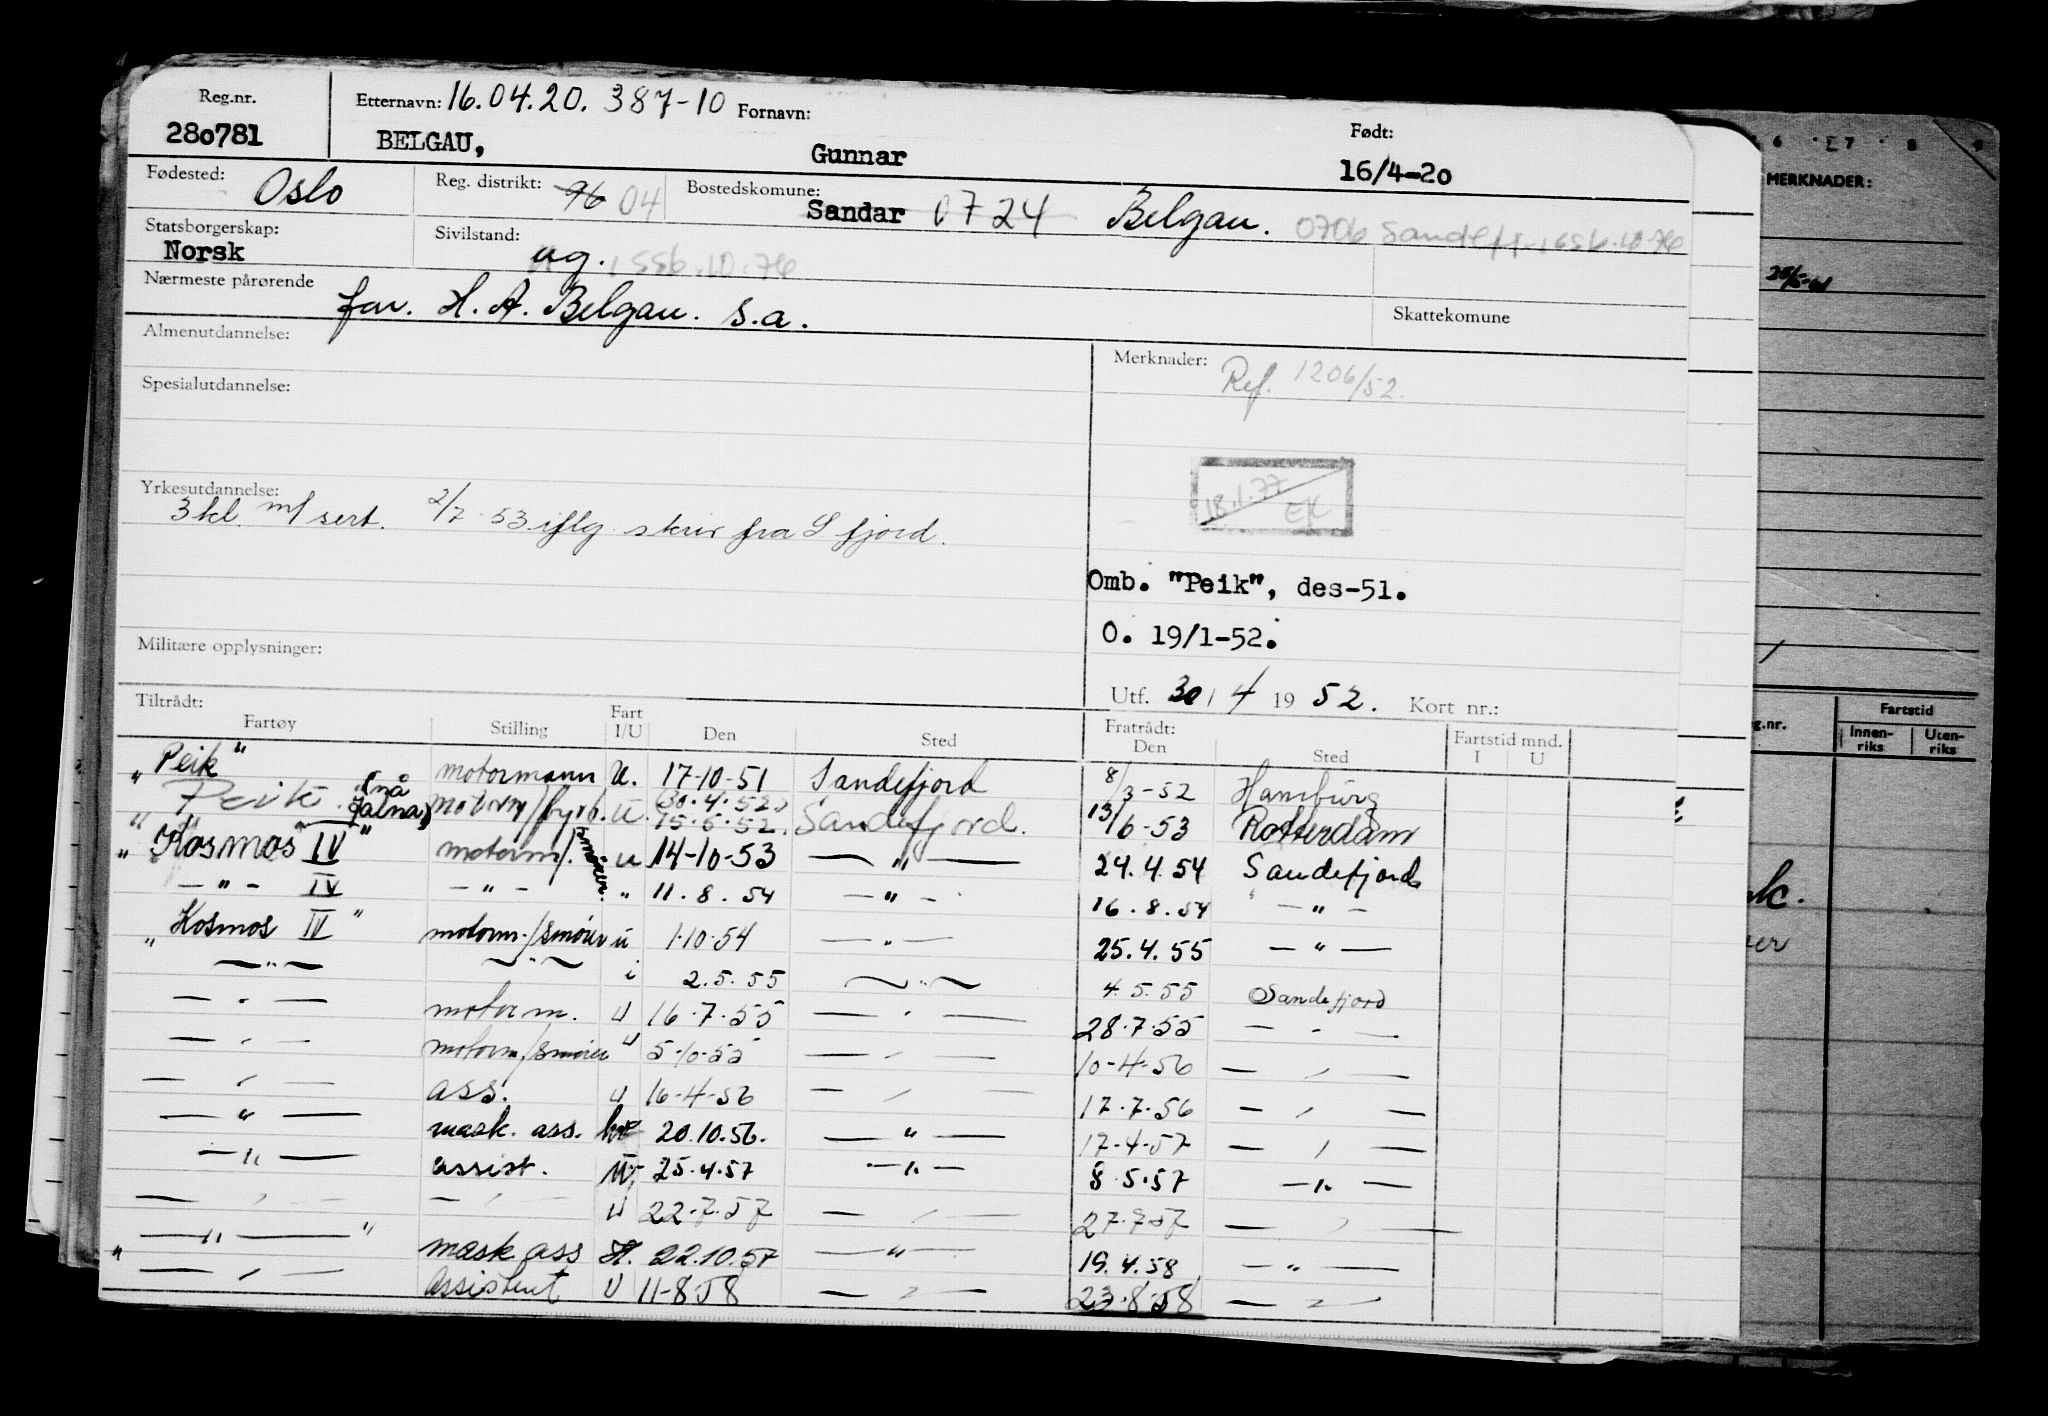 Reg.nr. Etternavn: 16.04.20. 387-10 Fornavn: Født:
280781 BELGAU, Gunnar 16/4-20
Fødested: Oslo Reg. distrikt: 96 04 Bostedskomune: Sandar 0724 Belgau. 0706 Sandefj.
Statsborgerskap: Norsk Sivilstand: ug.
Nærmeste pårørende far. H. A. Belgau. s.a. Skattekomune
Almenutdannelse: Merknader: Ref. 1206/52.
Spesialutdannelse:
18.1.77 EK
Yrkesutdannelse:
3 kl. m/ sert. 2/7-53 iflg. skriv fra S fjord.
Omb. "Peik", des-51.
O. 19/1-52.
Militære opplysninger:
Utf. 30/4 1952. Kort nr.:
Tiltrådt: Fratrådt: Fartstid mnd.
Fartøy Stilling Fart I/U Den Sted Den Sted I U
"Peik" motormann U. 17-10-51 Sandefjord 8/3-52 Hamburg
"Peik" (nå Jalna) motorm/fyrb. U. 30.4.52 15.5.52. Sandefjord. 13/6-53 Rotterdam
"Kosmos IV" motorm/smører. u 14-10-53 — " — 24.4.54 Sandefjord
— " — IV — " — " 11.8.54 — " — 16.8.54 — " —
"Kosmos IV" motorm./smører u 1.10.54 — " — 25.4.55 — " —
— " — — " — i 2.5.55 — " — 4.5.55 Sandefjord
— " — motorm. U 16.7.55 — " — 28.7.55 — " —
— " — motorm/smører U 5-10-55 — " — 10-4-56 — " —
— " — ass. U 16-4-56 — " — 17.7.56 — " —
— " — mask. ass. 20.10.56. — " — 17-4-57 — " —
— " — assist. 25.4.57 — " — 8.5.57 — " —
— " — — " — U 22.7.57 — " — 27.7.57 — " —
" — " — " mask ass 22.10.57 — " — 19.4.58 — " —
— " — Assistent U 11-8-58 — " — 23.8.58 — " —
6 7 8 9
MERKNADER:
Fartstid
g.nr. Innenriks Utenriks